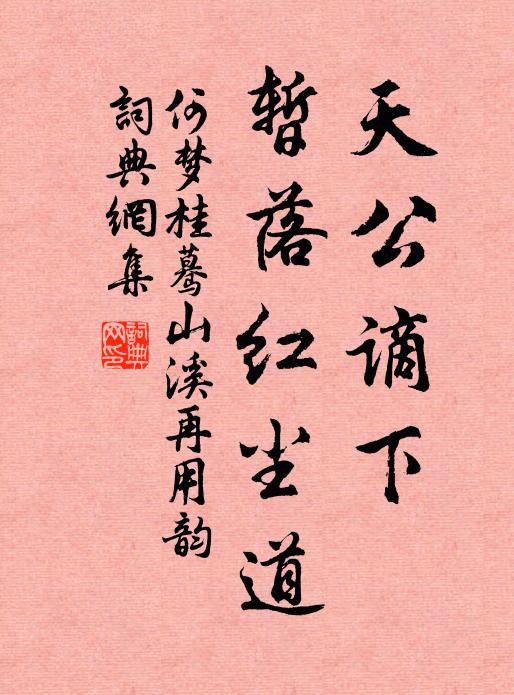 天公謫下
暫落红尘道
何梦桂蓦山溪再用韵
詞典網集
詞典
网印